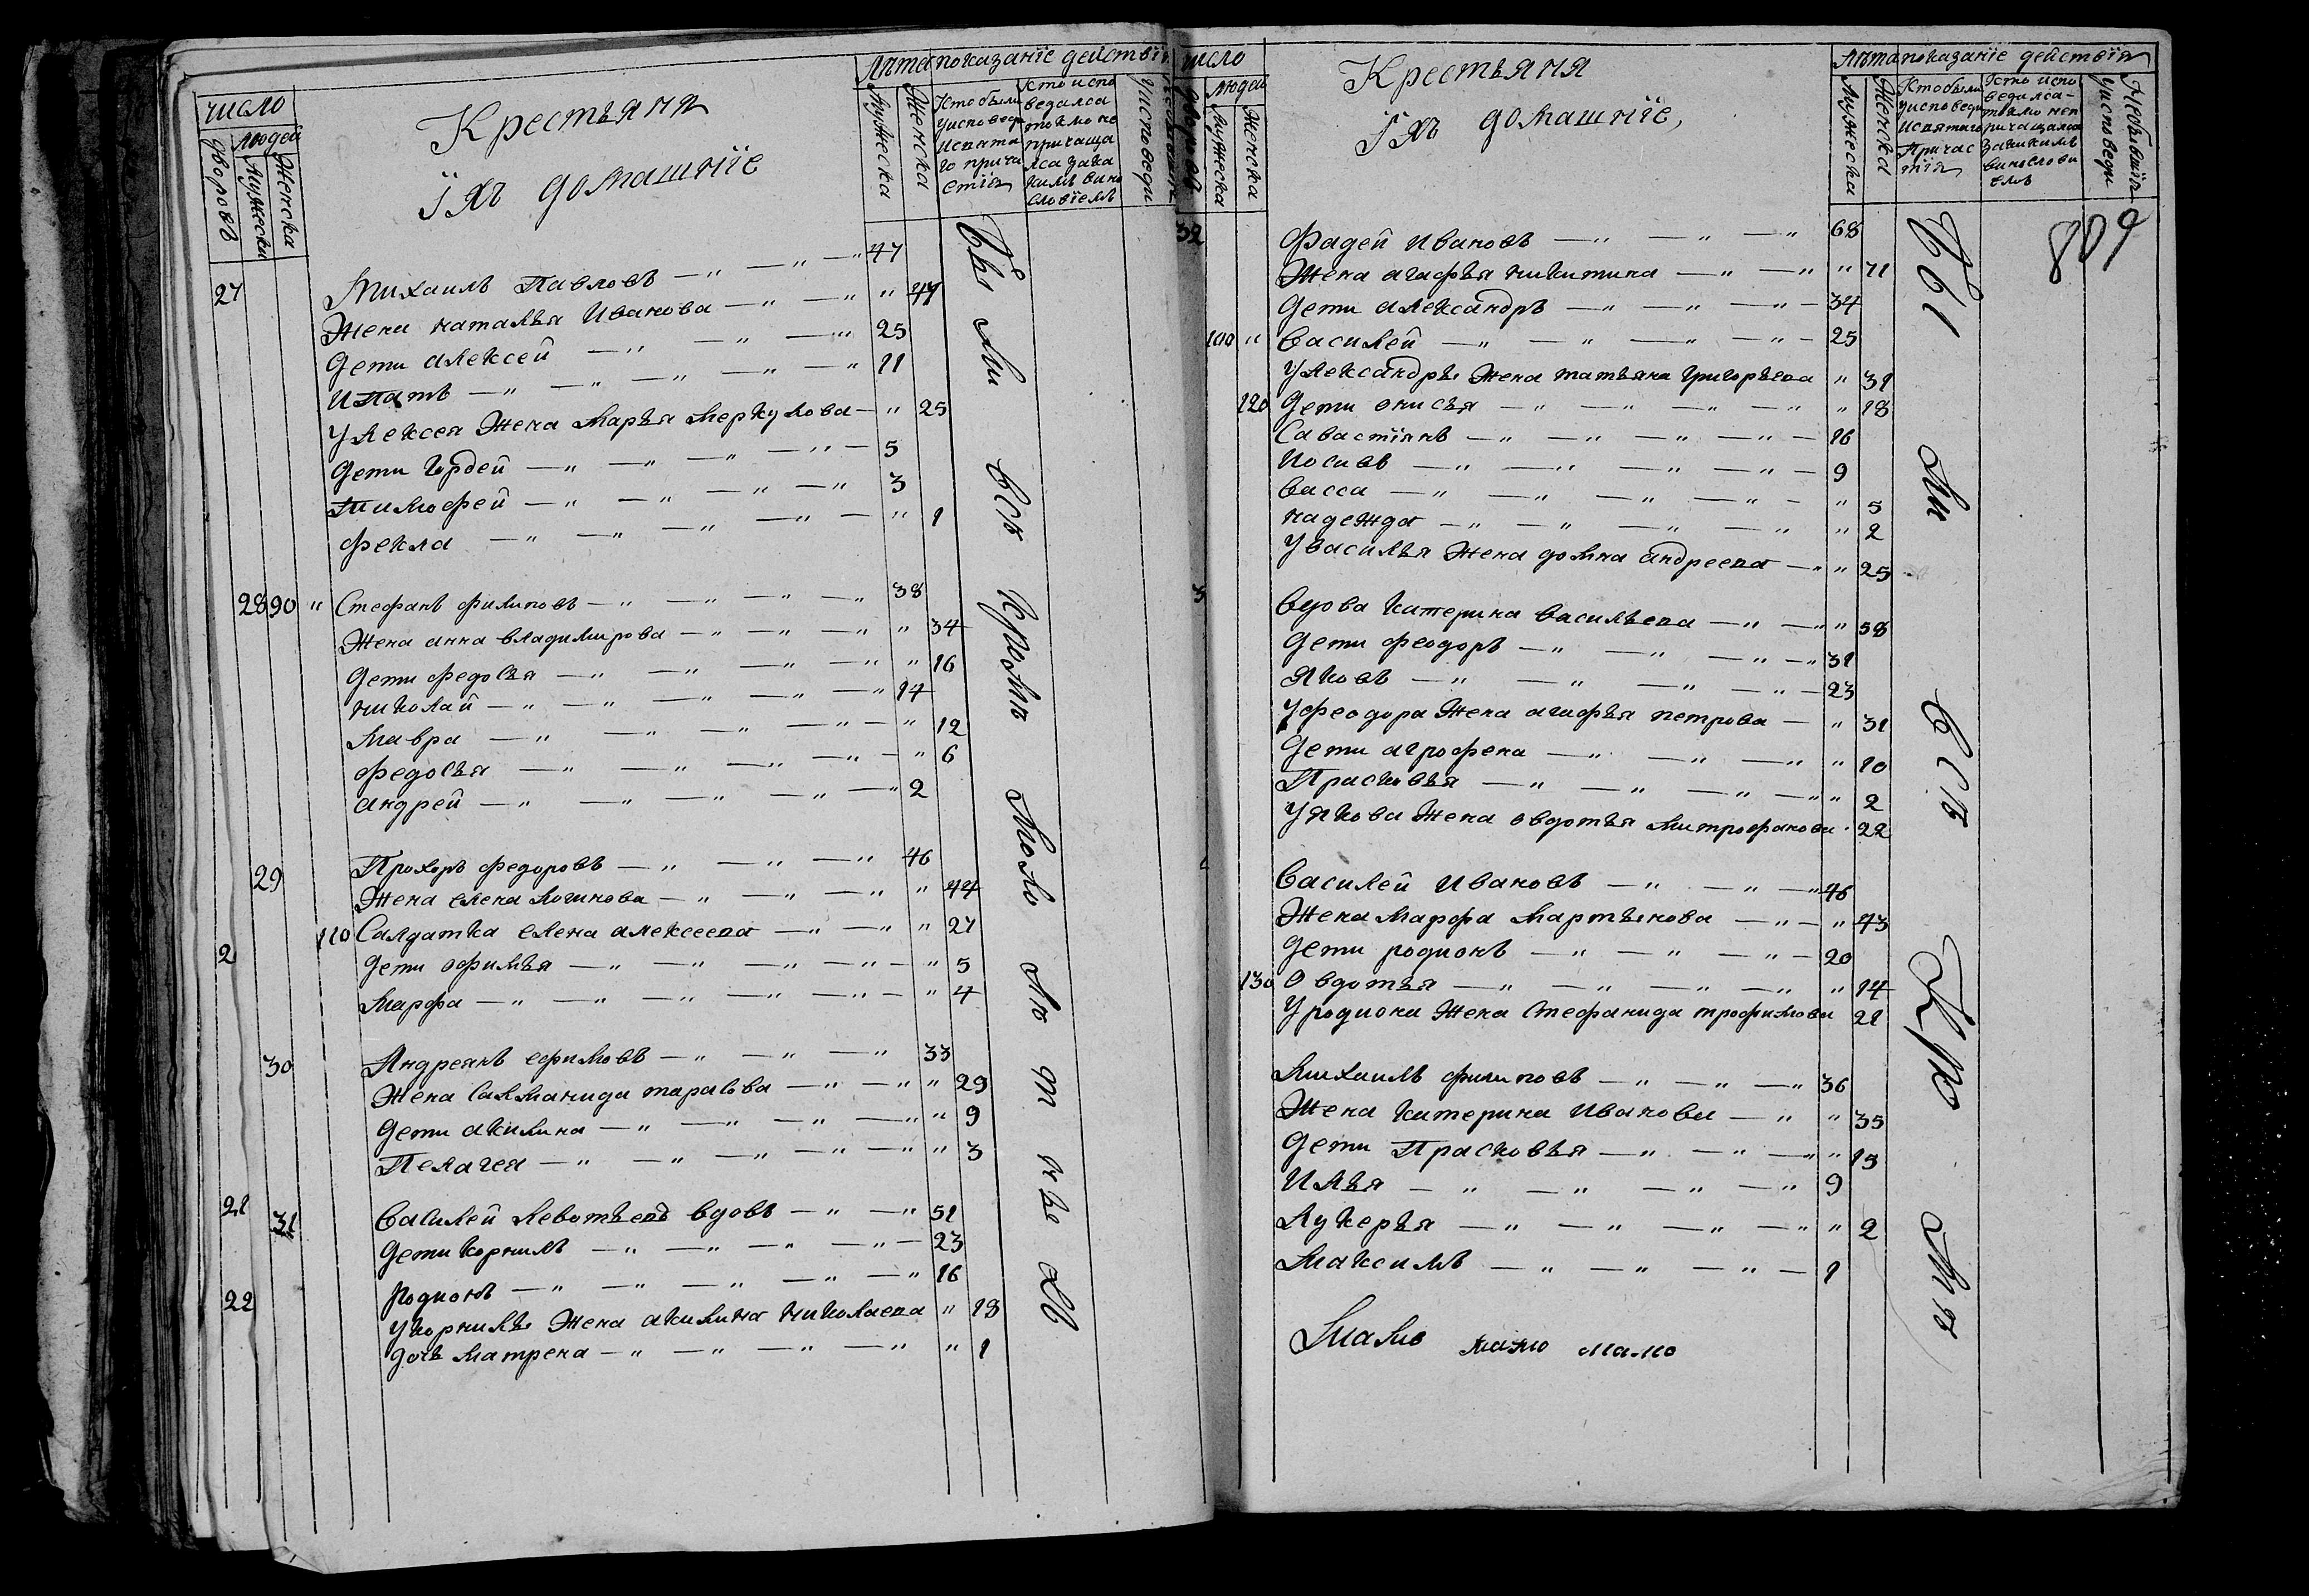 число
людей
дворовъ
Мужеска
Женска
Крестьяня
їхъ домашнїе
Лѣта показанїе действїя
Мужеска
Женска
Кто были уисповеди исвята го прича стїя
Кто испо ведался токмо не причаща лся зака кимъ вино словїемъ
уисповеди
27 Михаилъ Павловъ — „ — „ — „ 47
Жена наталья Иванова — „ — „ „ 47
Дети алексей — „ — „ — „ 25
Ипатъ — „ — „ — „ — „ — „ 11
У Алексея Жена Марья Меркулова — „ 25
Дети Гордей — „ — „ — „ — „ — 5
Тимофей — „ — „ — „ — „ 3
фекла — „ — „ — „ — „ — „ 1
28 90 „ Стефанъ филиповъ — „ — „ — „ — „ 38
Жена анна владимирова — „ — „ — „ „ 34
Дети федосья — „ — „ — „ — „ „ 16
николай — „ — „ — „ — „ — „ 14
Мавра — „ — „ — „ — „ — „ 12
федосья — „ — „ — „ — „ — „ 6
андрей — „ — „ — „ — „ — „ 2
29 Прохоръ федоровъ — „ — „ — „ 46
Жена елена логинова — „ — „ — „ „ 44
110 Салдатка елена алексеева — „ — „ „ 27
2 Дети офимья — „ — „ — „ — „ — „ 5
Марфа — „ — „ — „ — „ — „ — „ 4
30 Андреянъ ефимовъ — „ — „ — „ 33
Жена Саламанида тарасова — „ — „ „ 29
Дети акилина — „ — „ — „ — „ „ 9
Пелагея — „ — „ — „ — „ — „ „ 3
21 31 Василей Леонтьевъ вдовъ — „ — „ 51
Дети корнилъ — „ — „ — „ — „ — 23
Родионъ — „ — „ — „ — „ — „ 16
22 У корнилы Жена акилина николаева „ 18
дочь матрена — „ — „ — „ — „ „ 1
Бы ли всѣ кромѣ мало лѣ т нѣ хъ
число
дворовъ
людей
Мужеска
Женска
Крестьяня
їхъ домашнїе,
Лѣта показанїе действїя
Мужеска
Женска
Кто были уисповеди исвятаго Причас тїя
Кто испо ведался токмо неп ричащался закакимъ винослови емъ
Небывшїя уисповеди
809
32 Фадей Ивановъ — „ — „ — „ 68
Жена агафья никитина — „ — „ „ 71
Дети александръ — „ — „ — „ — 34
100 „ Василей — „ — „ — „ — „ — 25
У Александры Жена татьяна григорьева „ 31
120 Дети онисья — „ — „ — „ — „ „ 18
Савастїянъ — „ — „ — „ — „ — 16
Иосивъ — „ — „ — „ — „ — 9
Васса — „ — „ — „ — „ — „ 5
надежда — „ — „ — „ — „ „ 2
У василья Жена домна андреева — „ „ 25
Вдова катерина Васильева — „ — „ „ 58
Дети феодоръ — „ — „ — „ — „ 31
Яковъ — „ — „ — „ — „ — 23
У феодора Жена агафья петрова — „ 31
Дети агрофена — „ — „ — „ „ 10
Прасковья — „ — „ — „ — „ „ 2
У якова Жена овдотья митрофанова „ 22
Василей Ивановъ — „ — „ — „ 46
Жена Марфа Мартынова — „ — „ 43
Дети родионъ — „ — „ — „ — 20
130 Овдотья — „ — „ — „ — „ „ 14
У родиона Жена Стефанида трофимова 21
Михаилъ филиповъ — „ — „ — „ 36
Жена катерина Иванова — „ „ 35
Дети Прасковья — „ — „ — „ „ 15
Илья — „ — „ — „ — „ 9
Лукерья — „ — „ — „ — „ „ 2
Максимъ — „ — „ — „ — 1
Мало мало мало
Бы ли всѣ Кро мѣ